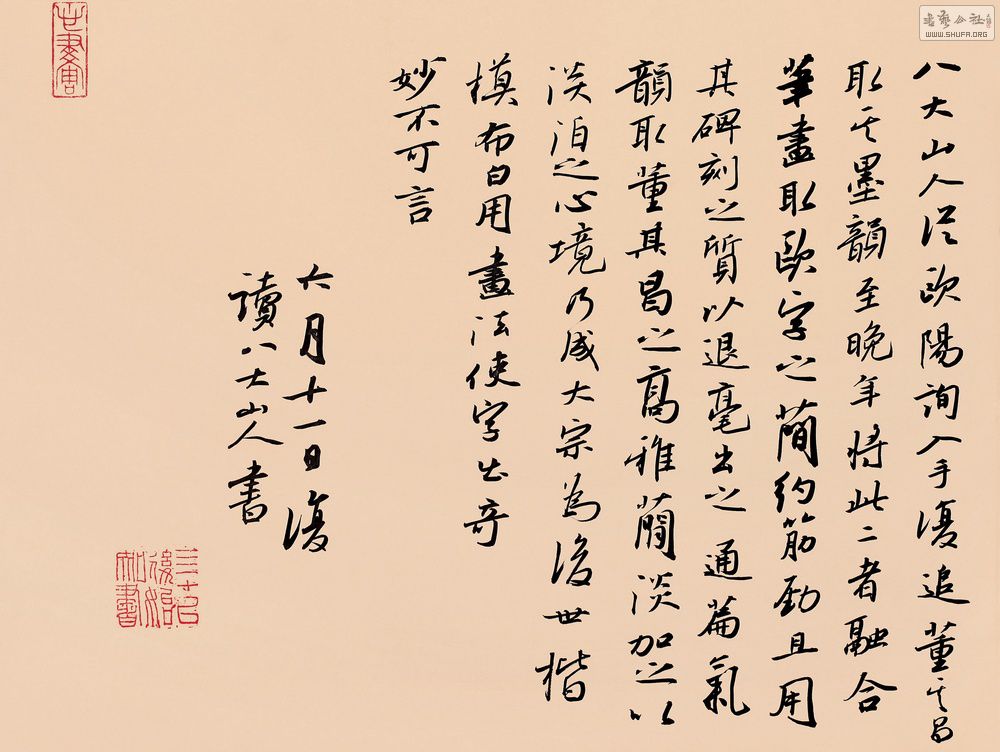 八大山人從歐陽詢入手復追董其昌
取其墨韻至晚年將此二者融合
筆畫取歐字之簡約筋勁且用
其碑刻之質以退毫出之通篇氣
韻取董其昌之高雅簡淡加之以
淡泊之心境乃成大宗為後世楷
模布白用畫法使字出奇
妙不可言
六月十一日復
讀八大山人書
三十後始知書
書藝公社
WWW.SHUFA.ORG